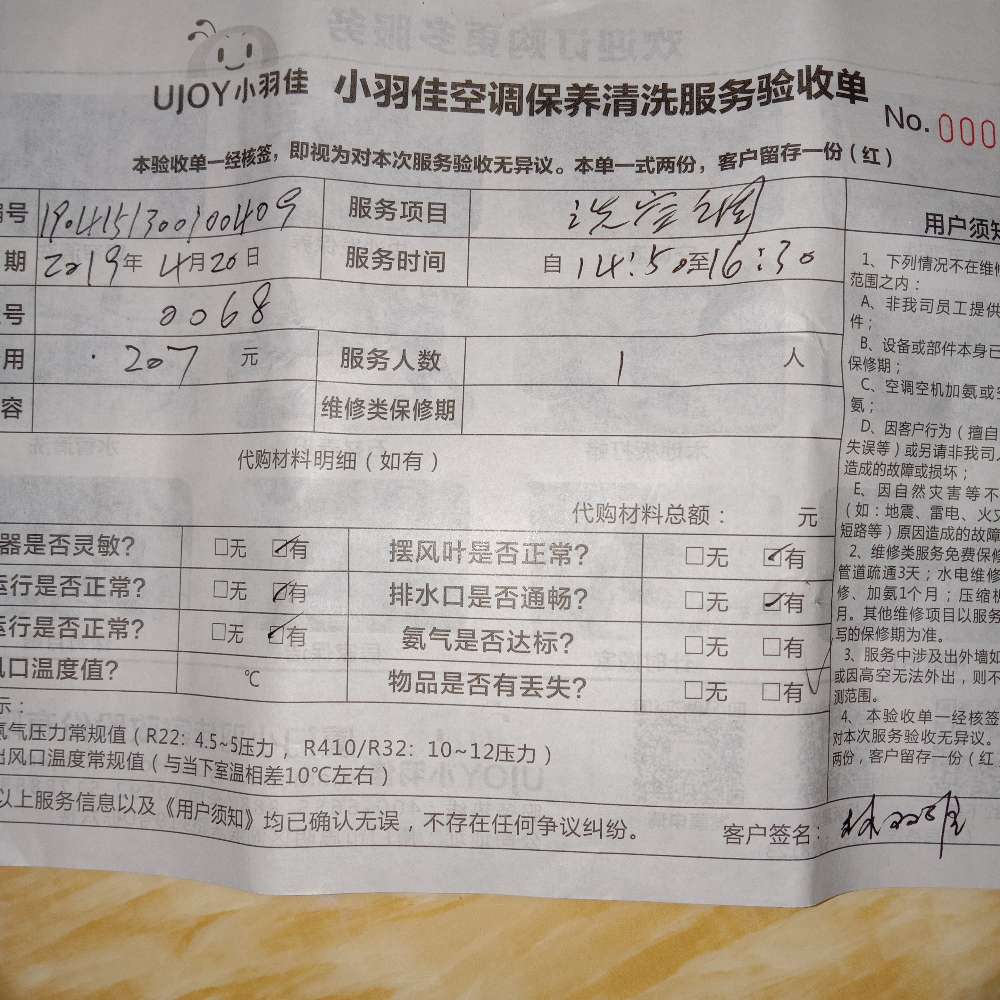 UJOY小羽佳 小羽佳空调保养清洗服务验收单
No. 000
本验收单一经核签，即视为对本次服务验收无异议。本单一式两份，客户留存一份（红）
编号 1904151300100409 服务项目 洗空调
期 2019年 4月20日 服务时间 自14:50至16:30
号 0068
用 207 元 服务人数 1 人
容 维修类保修期
代购材料明细（如有）
代购材料总额： 元
器是否灵敏? □无 ☑有 摆风叶是否正常? □无 ☑有
运行是否正常? □无 ☑有 排水口是否通畅? □无 ☑有
运行是否正常? □无 ☑有 氨气是否达标? □无 □有
风口温度值? ℃ 物品是否有丢失? □无 □有✓
示：
氨气压力常规值（R22: 4.5~5压力， R410/R32: 10~12压力）
出风口温度常规值（与当下室温相差10℃左右）
以上服务信息以及《用户须知》均已确认无误，不存在任何争议纠纷。 客户签名：
用户须知
1、下列情况不在维修
范围之内：
A、非我司员工提供
件；
B、设备或部件本身已
保修期；
C、空调空机加氨或
氨；
D、因客户行为（擅自
失误等）或另请非我司
造成的故障或损坏；
E、因自然灾害等不
（如：地震、雷电、火
短路等）原因造成的故障
2、维修类服务免费保修
管道疏通3天；水电维修
修、加氨1个月；压缩机
月。其他维修项目以服务
写的保修期为准。
3、服务中涉及出外墙如
或因高空无法外出，则不
测范围。
4、本验收单一经核签
对本次服务验收无异议。
两份，客户留存一份（红